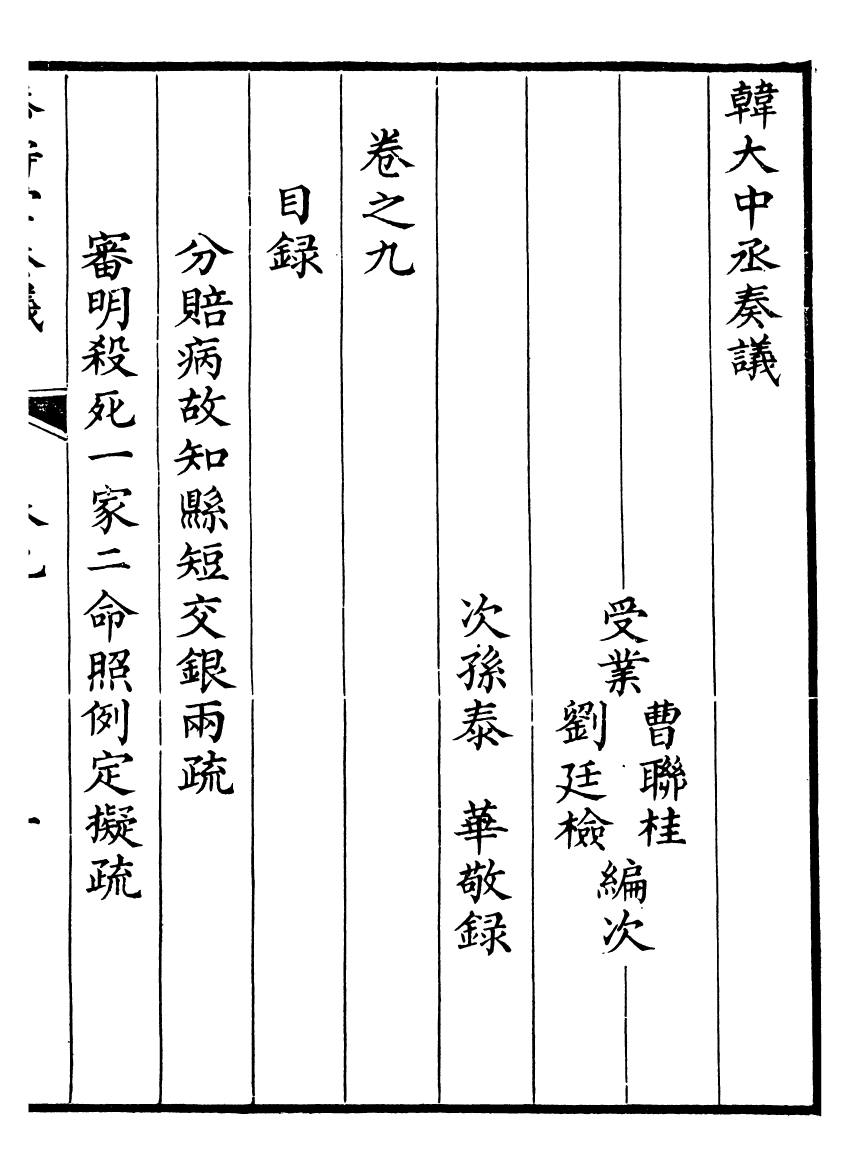 韓大中丞奏議
受業 曹聯桂 劉廷檢 編次
次孫泰 華敬録
卷之九
目録
分賠病故知縣短交銀兩疏
審明殺死一家二命照例定擬疏